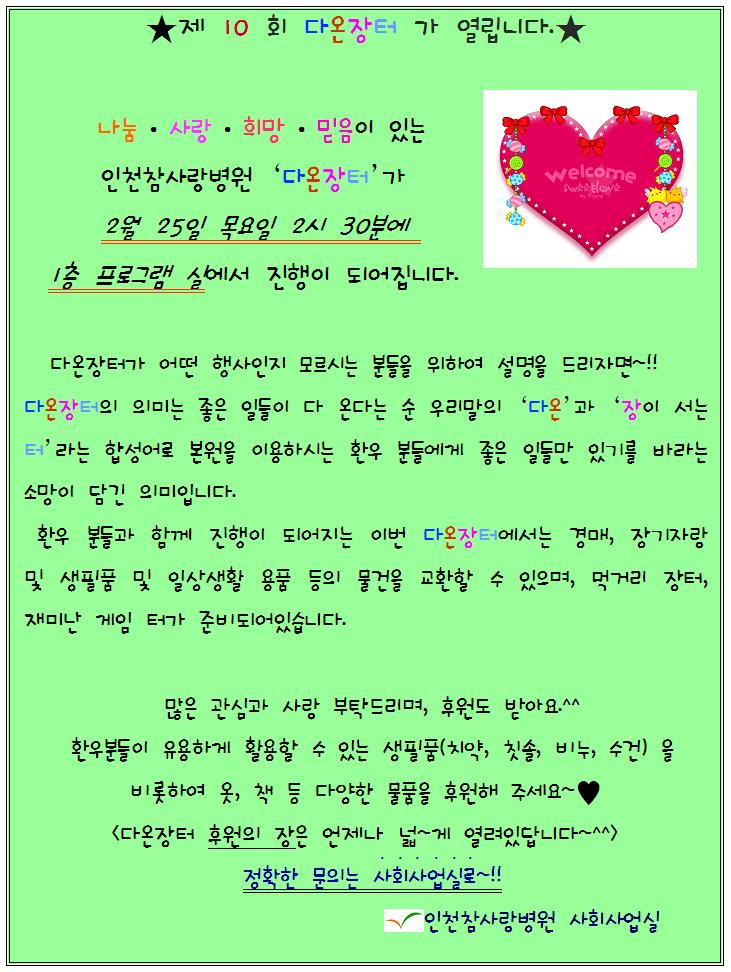 ★제 10 회 다온장터 가 열립니다.★
나눔 · 사랑 · 희망 · 믿음이 있는
인천참사랑병원 ‘다온장터’가
2월 25일 목요일 2시 30분에
1층 프로그램 실에서 진행이 되어집니다.
Welcome
sweetlove
다온장터가 어떤 행사인지 모르시는 분들을 위하여 설명을 드리자면~!!
다온장터의 의미는 좋은 일들이 다 온다는 순 우리말의 ‘다온’과 ‘장이 서는
터’라는 합성어로 본원을 이용하시는 환우 분들에게 좋은 일들만 있기를 바라는
소망이 담긴 의미입니다.
환우 분들과 함께 진행이 되어지는 이번 다온장터에서는 경매, 장기자랑
및 생필품 및 일상생활 용품 등의 물건을 교환할 수 있으며, 먹거리 장터,
재미난 게임 터가 준비되어있습니다.
많은 관심과 사랑 부탁드리며, 후원도 받아요.^^
환우분들이 유용하게 활용할 수 있는 생필품(치약, 칫솔, 비누, 수건) 을
비롯하여 옷, 책 등 다양한 물품을 후원해 주세요~♥
<다온장터 후원의 장은 언제나 넓~게 열려있답니다~^^>
정확한 문의는 사회사업실로~!!
인천참사랑병원 사회사업실